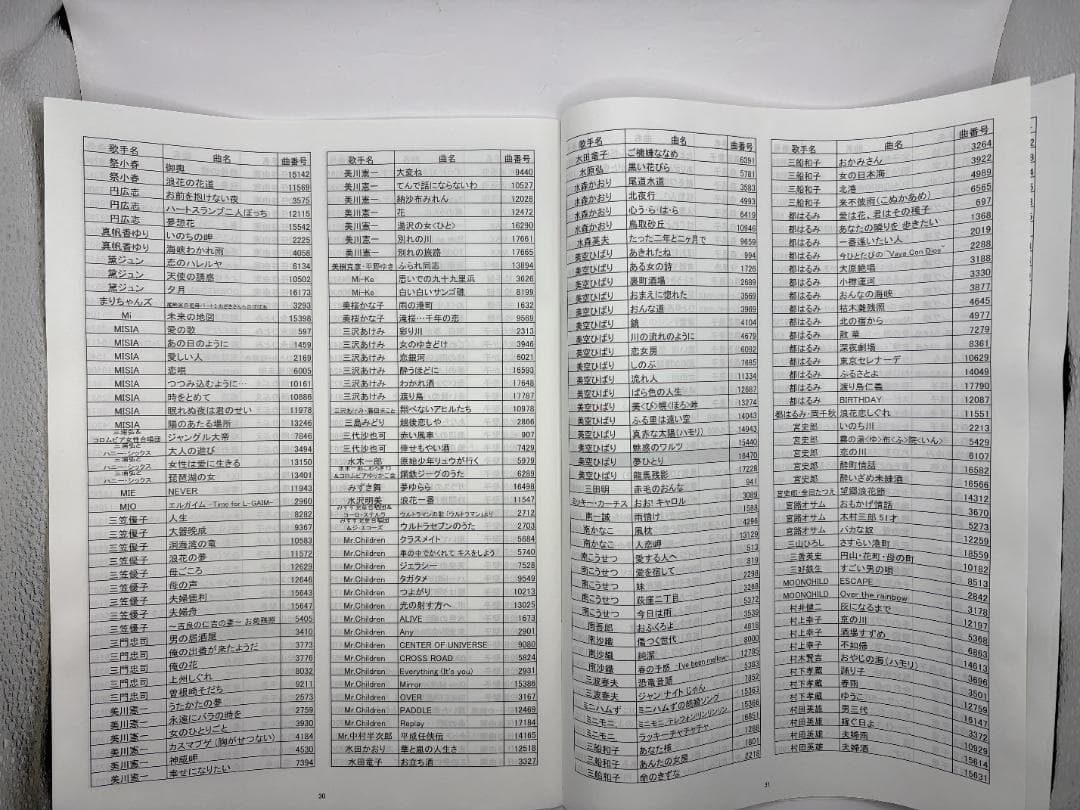 歌手名 曲名 曲番号
祭小春 御輿 15142
祭小春 浪花の花道 11569
円広志 お前を抱けない夜 3575
円広志 ハートスランプ二人ぼっち 12115
円広志 夢想花 15542
真帆香ゆり いのちの岬 2225
真帆香ゆり 海峡わかれ雨 4058
黛ジュン 恋のハレルヤ 6134
黛ジュン 天使の誘惑 10502
黛ジュン 夕月 16173
まりちゃんズ 3293
Mi 未来の地図 15398
MISIA 愛の歌 597
MISIA あの日のように 1459
MISIA 愛しい人 2169
MISIA 恋唄 6005
MISIA つつみ込むように… 10161
MISIA 時をとめて 10886
MISIA 眠れぬ夜は君のせい 11978
MISIA 陽のあたる場所 13246
コロムビア女性合唱団 ジャングル大帝 7846
ハニー・シックス 大人の遊び 3494
ハニー・シックス 女性は愛に生きる 13150
ハニー・シックス 琵琶湖の女 13401
MIE NEVER 11943
MIO エルガイム -Time for L-GAIM- 2960
三笠優子 人生 8282
三笠優子 大器晩成 9367
三笠優子 洞海湾の竜 10583
三笠優子 浪花の夢 11572
三笠優子 母ごころ 12629
三笠優子 母の声 12646
三笠優子 夫婦勝利 15643
三笠優子 夫婦舟 15647
三笠優子 ～吉良の仁吉の妻～ お菊 5405
三門忠司 男の居酒屋 3410
三門忠司 俺の出番が来たようだ 3773
三門忠司 俺の花 3776
三門忠司 上州しぐれ 8032
三門忠司 曽根崎そだち 9211
美川憲一 うたかたの夢 2573
美川憲一 永遠にバラの時を 2759
美川憲一 女のひとりごと 3930
美川憲一 カスマプゲ(胸がせつない) 4184
美川憲一 神威岬 4530
美川憲一 幸せになりたい 7394
歌手名 曲名 曲番号
美川憲一 大変ね 9440
美川憲一 てんで話にならないわ 10527
美川憲一 納沙布みれん 12028
美川憲一 花 12472
美川憲一 湯沢の女(ひと) 16290
美川憲一 別れの川 17661
美川憲一 別れの旅路 17665
美樹克彦・平野ゆき ふられ同志 13894
Mi-Ke 思い出の九十九里浜 3626
Mi-Ke 白い白いサンゴ礁 8199
美桜かな子 雨の港町 1632
美桜かな子 滝桜…千年の恋 9569
三沢あけみ 彩り川 2313
三沢あけみ 女のゆきどけ 3946
三沢あけみ 恋銀河 6021
三沢あけみ 酔うほどに 16593
三沢あけみ わかれ酒 17648
三沢あけみ 渡り鳥 17787
翔べないアヒルたち 10978
三島みどり 越後恋しや 2806
三代沙也可 赤い風車 907
三代沙也可 倖せもやい酒 7429
水木一郎 原始少年リュウが行く 5979
鋼鉄ジーグのうた 6289
みずき舞 夢ゆらら 16498
水沢明美 浪花一番 11547
ウルトラマンの歌「ウルトラマン」より 2712
ウルトラセブンのうた 2703
Mr.Children クラスメイト 5684
Mr.Children 車の中でかくれて キスをしよう 5740
Mr.Children ジェラシー 7528
Mr.Children タガタメ 9549
Mr.Children つよがり 10213
Mr.Children 光の射す方へ 13025
Mr.Children ALIVE 1673
Mr.Children Any 2901
Mr.Children CENTER OF UNIVERSE 9080
Mr.Children CROSS ROAD 5824
Mr.Children Everything (It's you) 2931
Mr.Children Mirror 15386
Mr.Children OVER 3167
Mr.Children PADDLE 12469
Mr.Children Replay 17184
Mr.中村半次郎 平成任侠伝 14165
水田かおり 華と嵐の人生さ 12518
水田竜子 お立ち酒 3327
30
歌手名 曲名 曲番号
水田竜子 ご機嫌ななめ 6391
水原弘 黒い花びら 5781
水森かおり 尾道水道 3583
水森かおり 北夜行 4993
水森かおり 心うらはら 6419
水森かおり 鳥取砂丘 10946
水森英夫 たった二年と二ヶ月で 9659
美空ひばり あきれたね 994
美空ひばり ある女の詩 1726
美空ひばり 裏町酒場 2689
美空ひばり おまえに惚れた 3569
美空ひばり おんな道 3969
美空ひばり 鏡 4104
美空ひばり 川の流れのように 4679
美空ひばり 恋女房 6092
美空ひばり しのぶ 7685
美空ひばり 流れ人 11334
美空ひばり ばら色の人生 12687
美空ひばり 美(くび)幌(ほろ)峠 13274
美空ひばり ふる里は遠い空 14043
美空ひばり 真赤な太陽(ハモリ) 14943
美空ひばり 魅惑のワルツ 15440
美空ひばり 夢ひとり 16470
美空ひばり 龍馬残影 17228
三田明 赤毛のおんな 941
ミッキー・カーチス おお! キャロル 3089
南一誠 雨情け 1588
南かなこ 風枕 4286
南かなこ 人恋岬 13129
南こうせつ 愛する人へ 513
南こうせつ 愛を宿して 819
南こうせつ 妹 2298
南こうせつ 荻窪二丁目 5372
南こうせつ 今日は雨 5539
南吾郎 おふくろよ 4818
南沙織 傷つく世代 8000
南沙織 純潔
南沙織 春の予感 -I've been mellow- 12785
三波春夫 恐竜音頭 5383
ミニハムず ミニハムずの結婚ソング 15363
ミニモニ。 ミニモニ。テレフォンリンリンリン 15366
ミニモニ。 ラッキーチャチャチャ 16851
三船和子 あなた様 1266
三船和子 あんたの女房 1801
三船和子 命のきずな 2218
曲名 曲番号
三船和子 おかみさん 3264
三船和子 女の日本海 3922
三船和子 北港 4989
三船和子 来不彼雨(こぬかあめ) 6565
都はるみ 愛は花、君はその種子 697
都はるみ あなたの隣りを 歩きたい 1368
都はるみ 一番逢いたい人 2019
都はるみ 今ひとたびの "Vaya Con Dios" 2288
都はるみ 大原絶唱 3188
都はるみ 小樽運河 3330
都はるみ おんなの海峡 3877
都はるみ 枯木灘残照 4645
都はるみ 北の宿から 4977
都はるみ 散華 7279
都はるみ 深夜劇場 8361
都はるみ 東京セレナーデ 10629
都はるみ ふるさとよ 14049
都はるみ 渡り鳥仁義 17790
都はるみ BIRTHDAY 12087
都はるみ・岡千秋 浪花恋しぐれ 11551
宮史郎 いのち川 2213
宮史郎 雲の湯(ゆ)布(ふ)院(いん) 5429
宮史郎 恋の川 6107
宮史郎 酔町情話 16582
宮史郎 酔いざめ未練酒 16566
宮史郎・金田たつえ 望郷浪花節 14312
宮路オサム おもかげ情話 3670
宮路オサム 木村三郎 51才 5273
宮路オサム バカな奴 12259
三山ひろし さすらい港町 18559
三善英史 円山・花町・母の町 10182
三好鉄生 すごい男の唄 8513
MOONCHILD ESCAPE 2842
MOONCHILD Over the rainbow 3178
村井健二 灰になるまで 12197
村上幸子 京の川 5368
村上幸子 酒場すずめ 6863
村上幸子 不如帰 14613
村木賢吉 おやじの海(ハモリ) 3696
村下孝蔵 踊り子 3501
村下孝蔵 春雨 12759
村下孝蔵 ゆうこ 16147
村田英雄 男三代 3372
村田英雄 嫁てロよ 10929
村田英雄 夫婦雨 15614
村田英雄 夫婦酒 15631
31